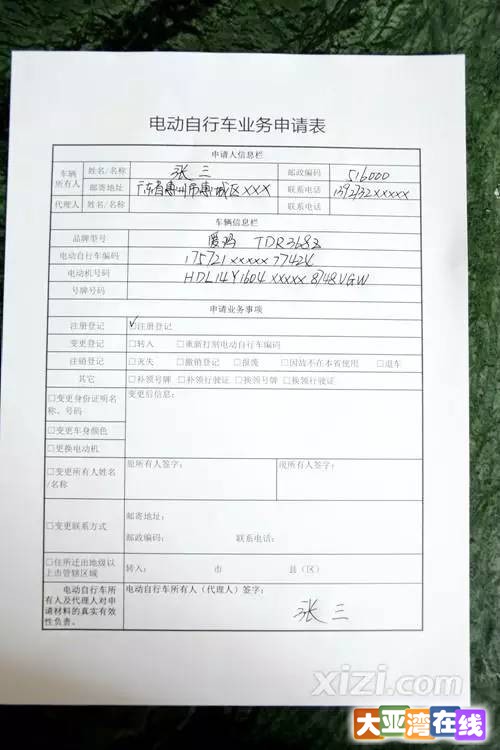 电动自行车业务申请表
申请人信息栏
车辆所有人 姓名/名称 张三 邮政编码 516000
邮寄地址 广东省惠州市惠城区XXX 联系电话 1392732xxxxx
代理人 姓名/名称 联系电话
车辆信息栏
品牌型号 爱玛 TDR368Z
电动自行车编码 175721xxxxx77424
电动机号码 HDL14Y1604xxxxx8748VGW
号牌号码
申请业务事项
注册登记 ☑注册登记
变更登记 □转入 □重新打刻电动自行车编码
注销登记 □灭失 □撤销登记 □报废 □因故不在本省使用 □退车
其它 □补领号牌 □补领行驶证 □换领号牌 □换领行驶证
□变更身份证明名称、号码 变更后信息:
□变更车身颜色
□更换电动机
□变更所有人姓名/名称 原所有人签字: 现所有人签字:
□变更联系方式 邮寄地址:
邮政编码: 联系电话:
□住所迁出地级以上市管辖区域 转入: 市 县(区)
电动自行车所有人及代理人对申请材料的真实有效性负责。 电动自行车所有人(代理人)签字:
张三
xizi.com
大亚湾在线